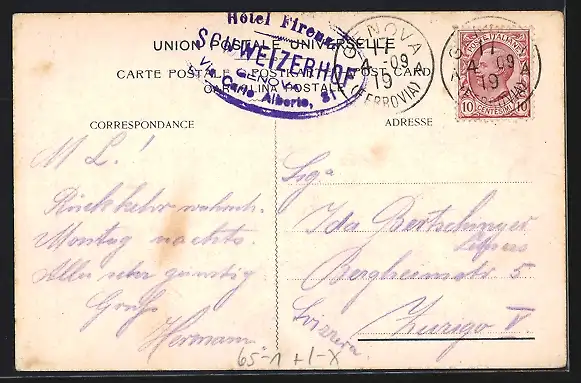 Hôtel Firenze
SCHWEIZERHOF
GENOVA
Via Carlo Alberto, 31
UNION POSTALE UNIVERSELLE
CARTE POSTALE - POSTKARTE - POST CARD
CARTOLINA POSTALE
GENOVA
11
4 -09
19
(FERROVIA)
GENOVA
11
4 -09
19
(FERROVIA)
POSTE ITALIANE
10 CENTESIMI 10
CORRESPONDANCE
ADRESSE
M L!
Rückkehr wahrsch.
Montag nachts
Alles sehr günstig
Gruss
Hermann
Siga
Ida Bertschinger
Bergheimstr 5
Zurigo V.
Svizzera
65-1 +1-X